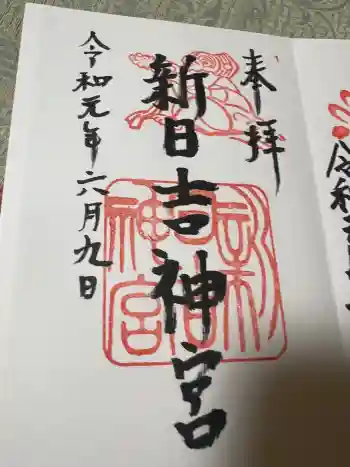 奉拝
新日吉神宮
令和元年六月九日